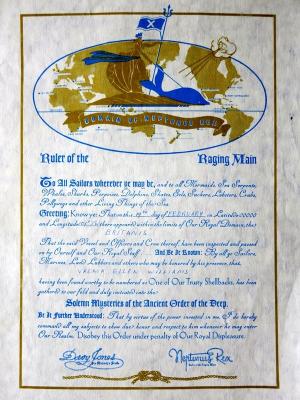 DOMAIN OF NEPTUNUS REX
Ruler of the Raging Main
To All Sailors wherever ye may be, and to all Mermaids, Sea Serpents,
Whales, Sharks, Porpoises, Dolphins, Skates, Eels, Suckers, Lobsters, Crabs,
Pollywogs and other Living Things of the Sea.
Greeting: Know ye: That on this 19th day of FEBRUARY in Latitude 00000
and Longitude there appeared within the limits of Our Royal Domain, the
BRITANIS
That the said Vessel and Officers and Crew thereof, have been inspected and passed
on by Ourself and Our Royal Staff. And Be It Known: By all ye Sailors,
Marines, Land Lubbers and others who may be honored by his presence, that
VALMA ELLEN WILLIAMS
having been found worthy to be numbered as One of Our Trusty Shellbacks, has been
gathered to our fold and duly initiated into the
Solemn Mysteries of the Ancient Order of the Deep.
Be It Further Understood: That by virtue of the power invested in me I do hereby
command all my subjects to show due honor and respect to him whenever he may enter
Our Realm. Disobey this Order under penalty of Our Royal Displeasure.
Davy Jones Neptunus Rex
His Majesty's Scribe Ruler of the Raging Main